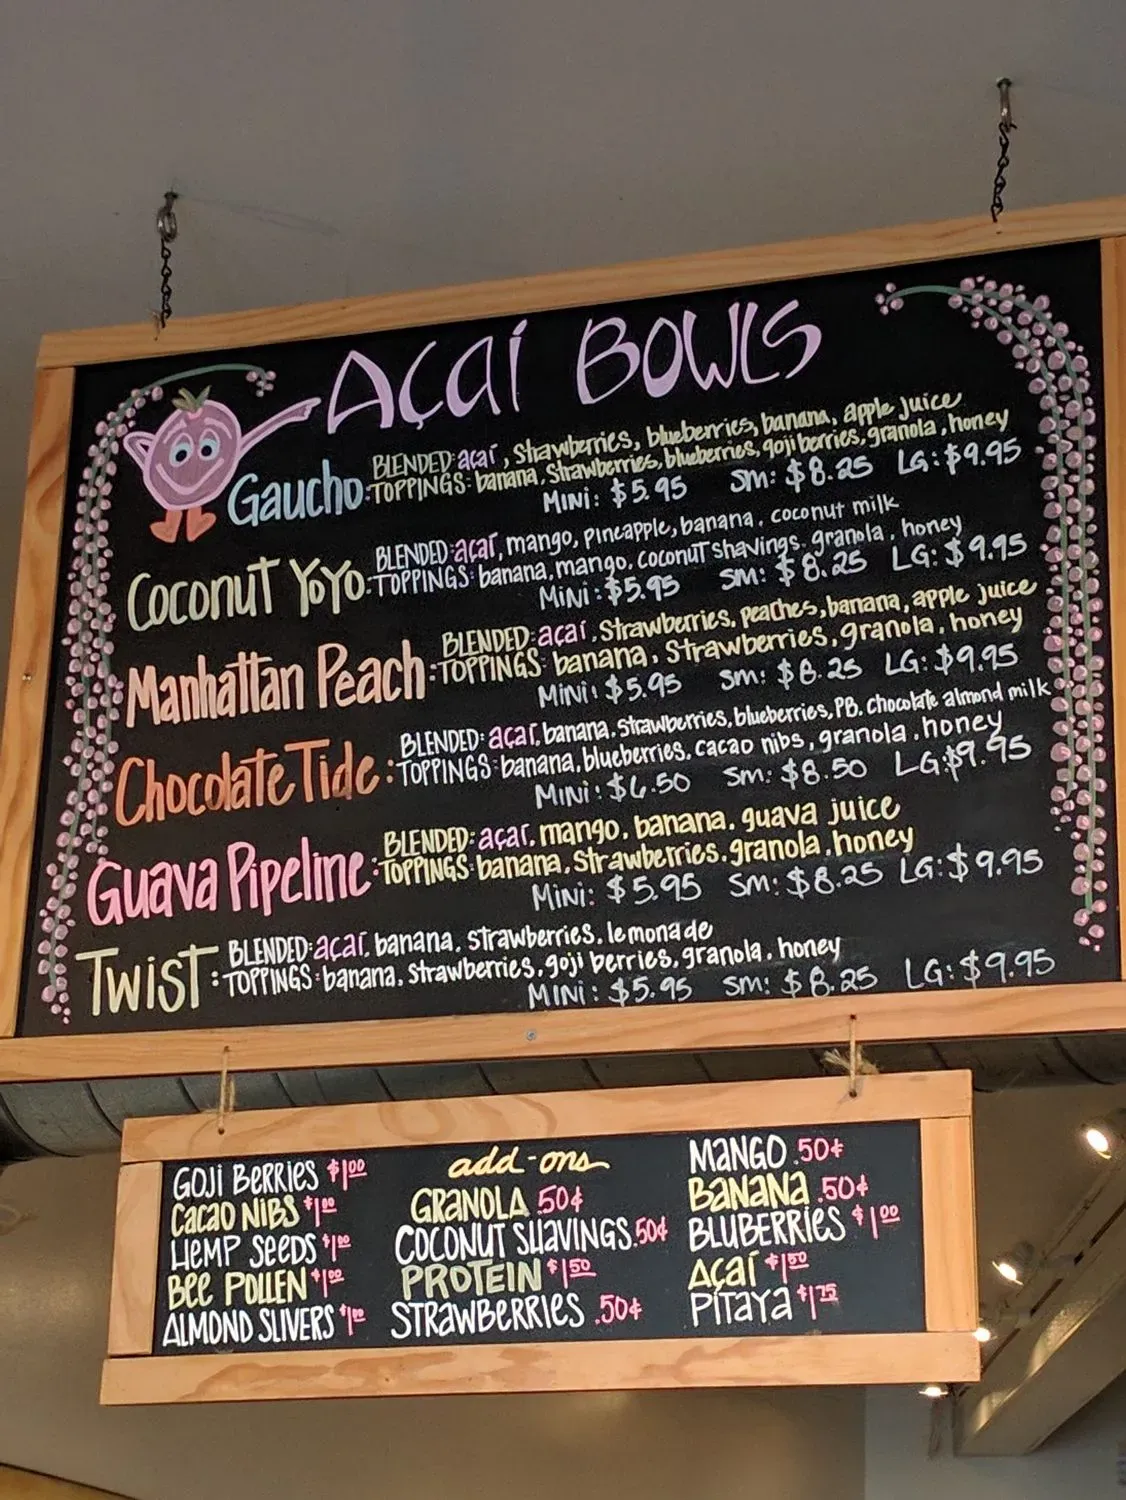 AÇAÍ BOWLS
Gaucho: BLENDED: açaí, strawberries, blueberries, banana, apple juice
TOPPINGS: banana, strawberries, blueberries, goji berries, granola, honey
MINI: $5.95 SM: $8.25 LG: $9.95
Coconut YoYo: BLENDED: açaí, mango, pineapple, banana, coconut milk
TOPPINGS: banana, mango, coconut shavings, granola, honey
MINI: $5.95 SM: $8.25 LG: $9.95
Manhattan Peach: BLENDED: açaí, strawberries, peaches, banana, apple juice
TOPPINGS: banana, strawberries, granola, honey
MINI: $5.95 SM: $8.25 LG: $9.95
Chocolate Tide: BLENDED: açaí, banana, strawberries, blueberries, PB, chocolate almond milk
TOPPINGS: banana, blueberries, cacao nibs, granola, honey
MINI: $6.50 SM: $8.50 LG: $9.95
Guava Pipeline: BLENDED: açaí, mango, banana, guava juice
TOPPINGS: banana, strawberries, granola, honey
MINI: $5.95 SM: $8.25 LG: $9.95
Twist: BLENDED: açaí, banana, strawberries, lemonade
TOPPINGS: banana, strawberries, goji berries, granola, honey
MINI: $5.95 SM: $8.25 LG: $9.95
add-ons
GOJI BERRIES $1.00
CACAO NIBS $1.00
HEMP SEEDS $1.00
BEE POLLEN $1.00
ALMOND SLIVERS $1.00
GRANOLA .50¢
COCONUT SHAVINGS .50¢
PROTEIN $1.50
STRAWBERRIES .50¢
MANGO .50¢
BANANA .50¢
BLUBERRIES $1.00
AÇAÍ $1.50
PITAYA $1.75